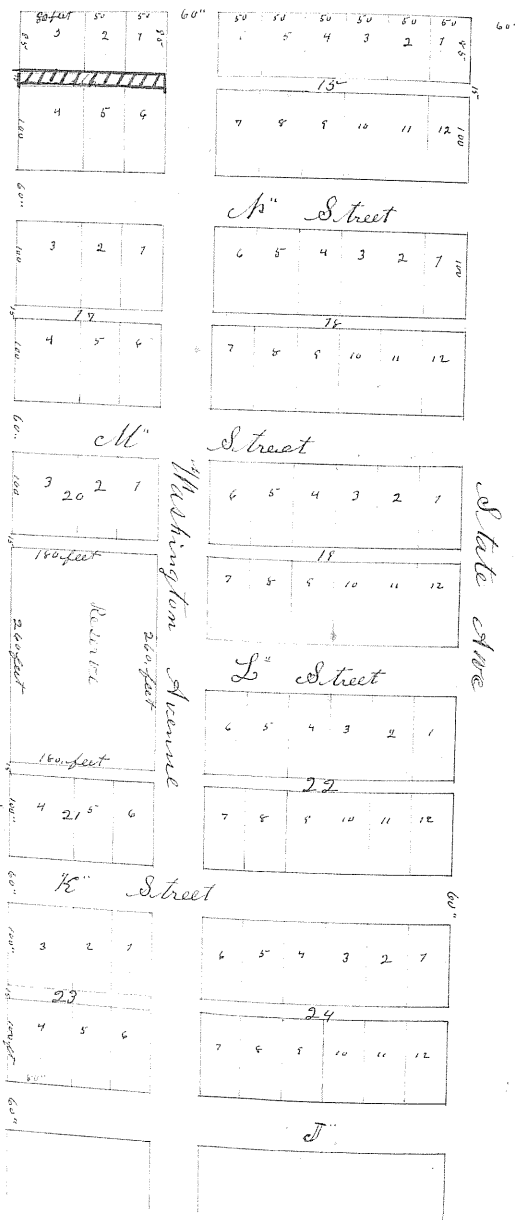 80 feet 50 50 60" 50 50 50 50 50 50 60"
85 3 2 1 85 5 4 3 2 1 85
15 15"
100 4 5 6 7 8 9 10 11 12 100
60"
N" Street
100 3 2 1 6 5 4 3 2 1 100
15" 17 18
100 4 5 6 7 8 9 10 11 12
60"
M" Street
100 3 20 2 1 6 5 4 3 2 1
15" 19
180 feet
7 8 9 10 11 12
260 feet Reserve 260 feet
Washington Avenue
State Ave
L" Street
6 5 4 3 2 1
180 feet
15" 22
100" 4 21 5 6 7 8 9 10 11 12
60" "K" Street 60"
100" 3 2 1 6 5 4 3 2 1
15" 23 24
100 ft 4 5 6 7 8 9 10 11 12
60"
60" J"